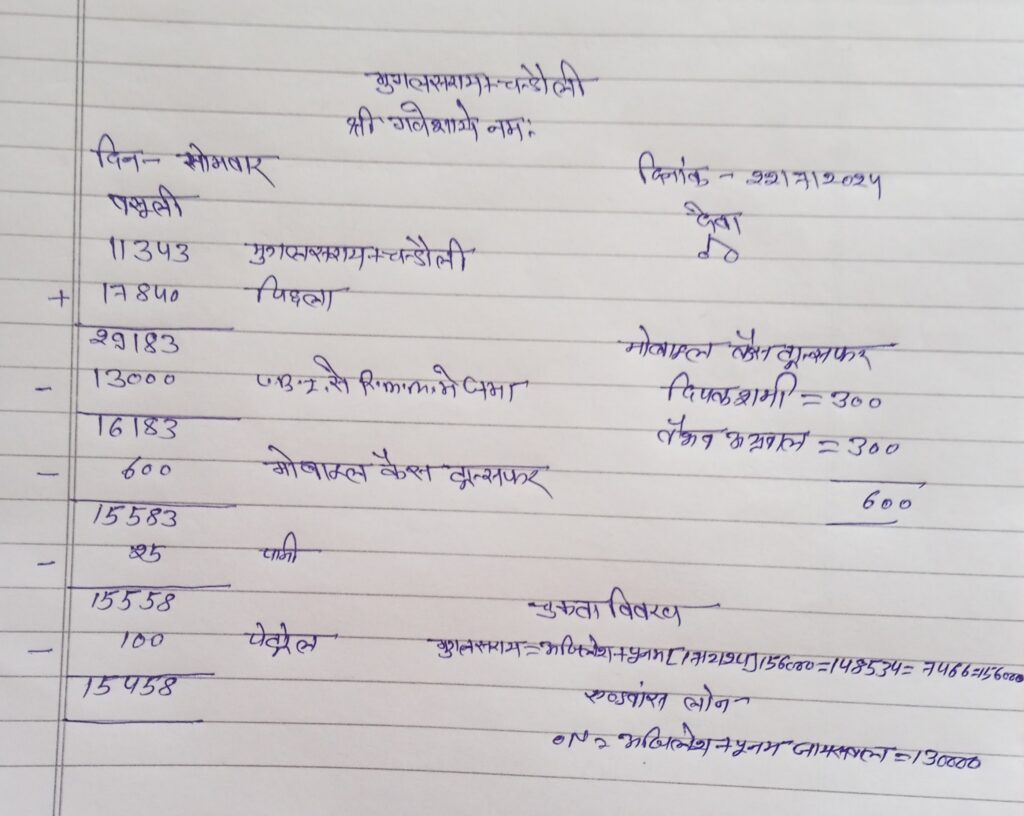 मुगलसराय+चन्दौली
श्री गणेशाये नमः
दिन- सोमवार
दिनांक - 22/7/2024
वसूली
देवा
11343 मुगलसराय+चन्दौली
+ 17840 पिछला
29183
- 13000 U.B.I. से में जमा
16183
- 600 मोबाइल कैस ट्रान्सफर
15583
- 25 पानी
15558
- 100 पेट्रोल
15458
मोबाइल कैस ट्रान्सफर
दिपक शर्मा = 300
वैभव अग्रवाल = 300
600
चुकता विवरण
मुगलसराय = अखिलेश+पूनम 156000=148534= 7466=156000
एडवांस लोन-
अखिलेश+पूनम जायसवाल = 130000